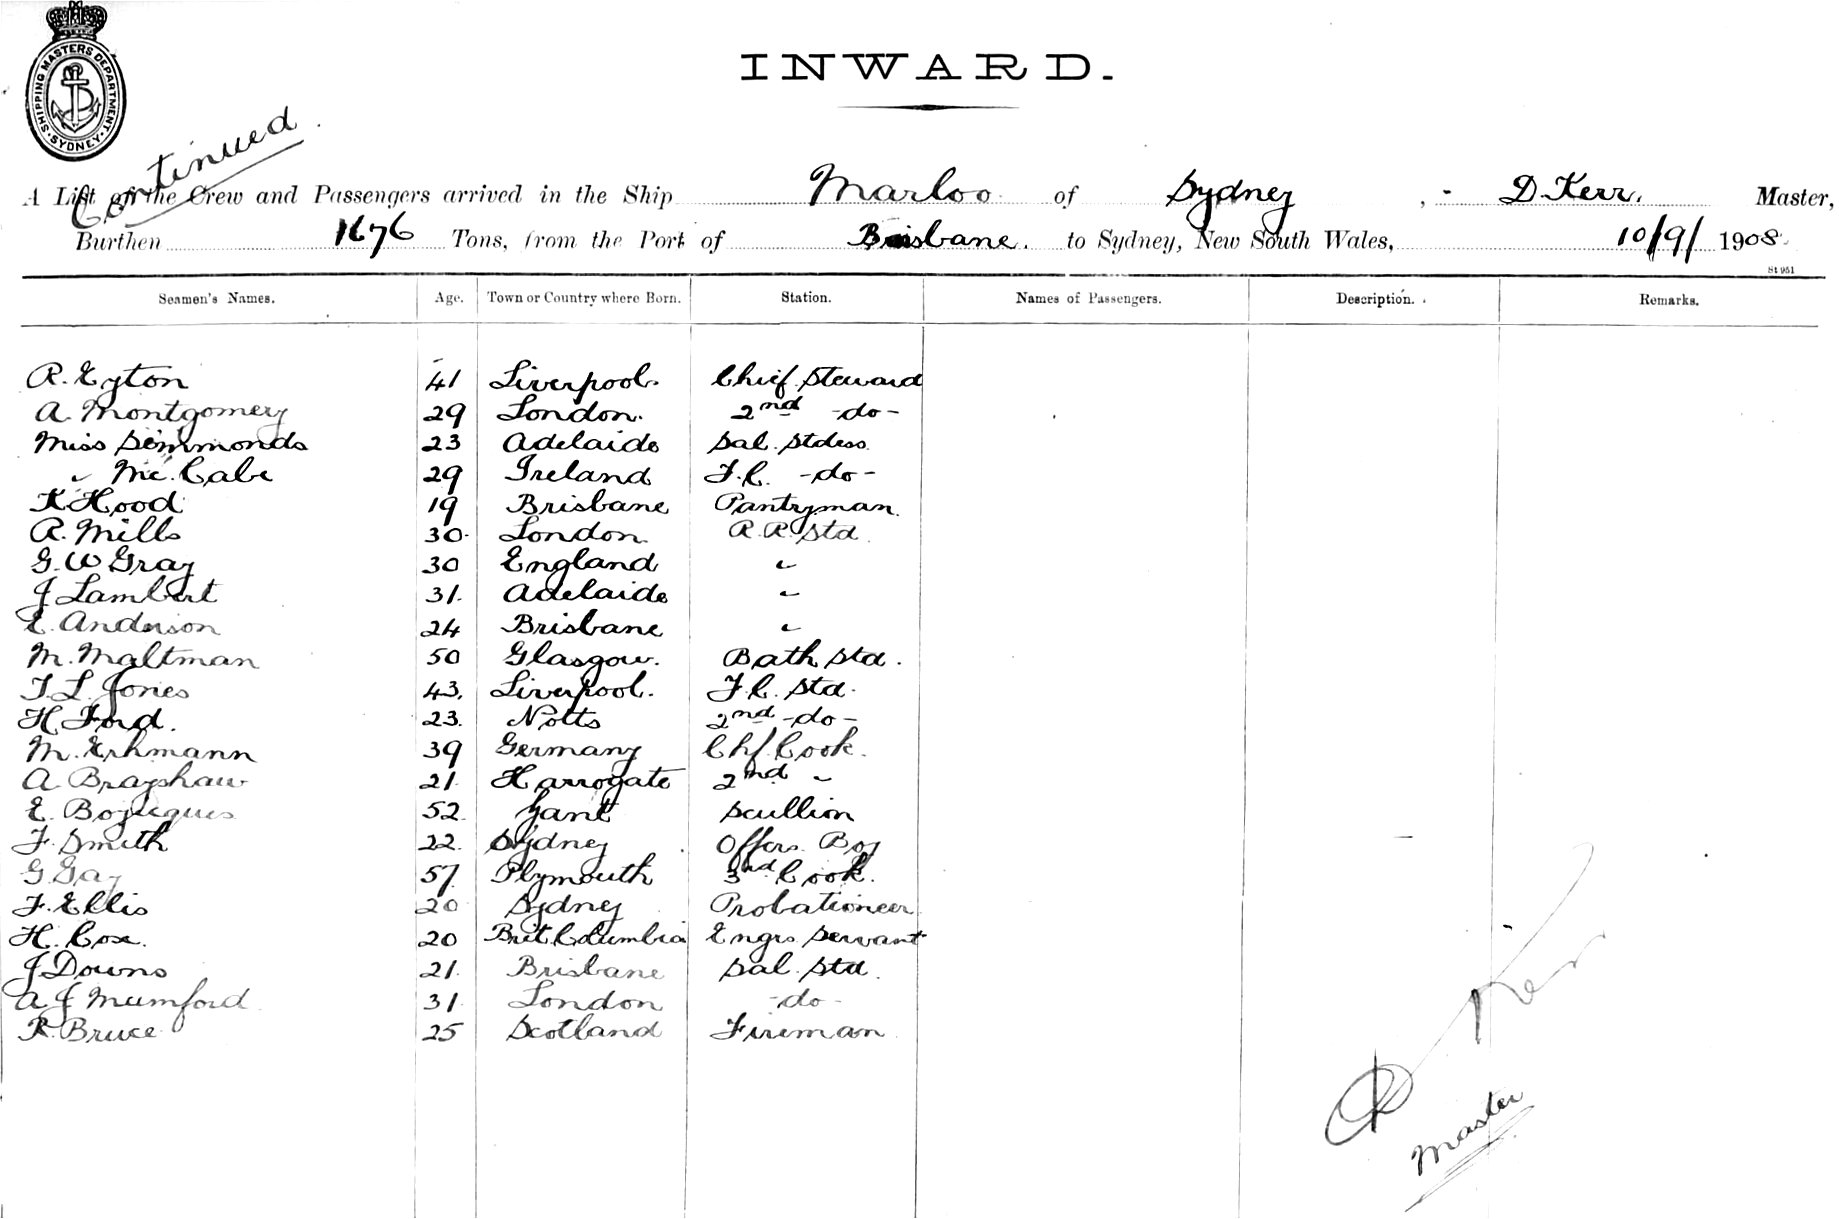 SHIPPING MASTERS DEPARTMENT. SYDNEY
INWARD.
Continued
A List of the Crew and Passengers arrived in the Ship Marloo of Sydney, - D. Kerr. Master,
Burthen 1676 Tons, from the Port of Brisbane. to Sydney, New South Wales, 10/9/1908
St 951
Seamen's Names. Age. Town or Country where Born. Station. Names of Passengers. Description. Remarks.
R. Eyton 41 Liverpool. Chief Steward
A. Montgomery 29 London. 2nd -do-
Miss Simmonds 23 Adelaide Sal. Stdess
" Mc.Cabe 29 Ireland F.C. -do-
K Hood 19 Brisbane Pantryman
R. Mills 30 London R.R. Std.
G. W Gray 30 England "
J Lambert 31. Adelaide "
E. Anderson 24 Brisbane "
M. Maltman 50 Glasgow. Bath Std.
T. L. Jones 43. Liverpool. F.C. Std.
H Ford. 23. Notts 2nd -do-
M. Erhmann 39 Germany Chf. Cook.
A Brayshaw 21. Harrogate 2nd "
E. 52. Scullion
F. Smith 22. Sydney Offcrs. Boy
G Gay 57. Plymouth 3rd Cook.
F. Ellis 20 Sydney Probationeer
H. Cose. 20 Brit. Columbia Engrs Servant
J Downs 21. Brisbane Sal. Std.
A J Mumford 31 London -do-
R. Bruce 25 Scotland Fireman
D Kerr
Master